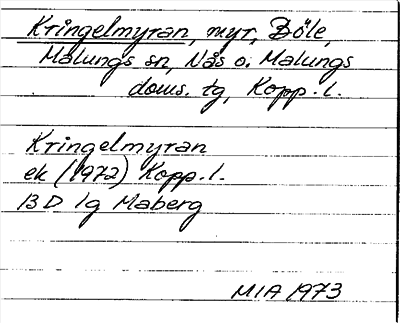 Kringelmyran, myr, Böle,
Malungs sn, Nås o. Malungs
doms. tg, Kopp. l.
Kringelmyran
ek (1972) Kopp. l.
13 D 1g Maberg
MIA 1973